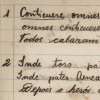 1 Conticuere omnes
omnes conticuere
Todos calaram
2 Inde toro pa
Inde pater Aenea
Depois o heróe